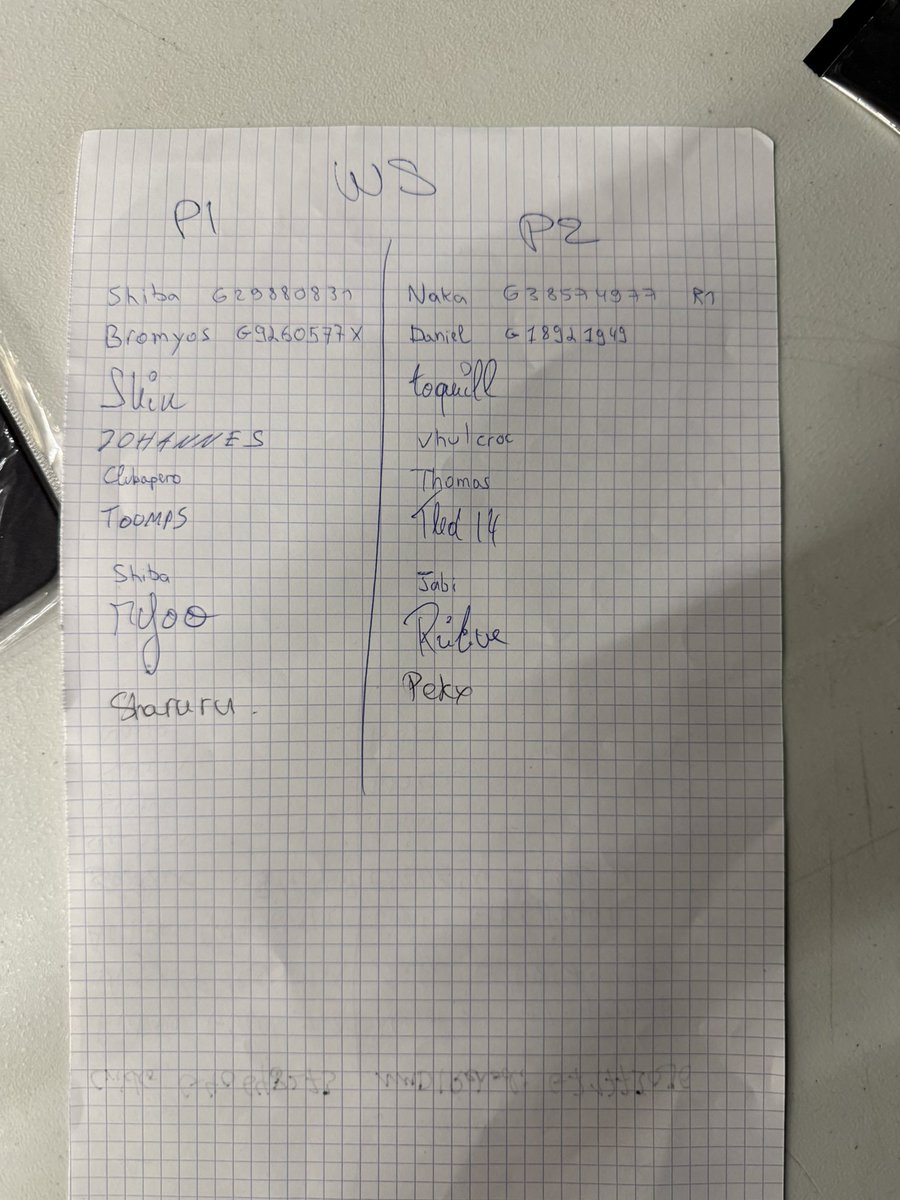 WS
P1
P2
Shiba G29880831
Bromyos G9260577X
Skin
JOHANNES
Clubapero
TOOMPS
Shiba
ryoo
Sharuru.
Naka G38574977 R1
Daniel G18921949
toquill
vhulcroc
Thomas
Tled 14
Jabi
Pekx